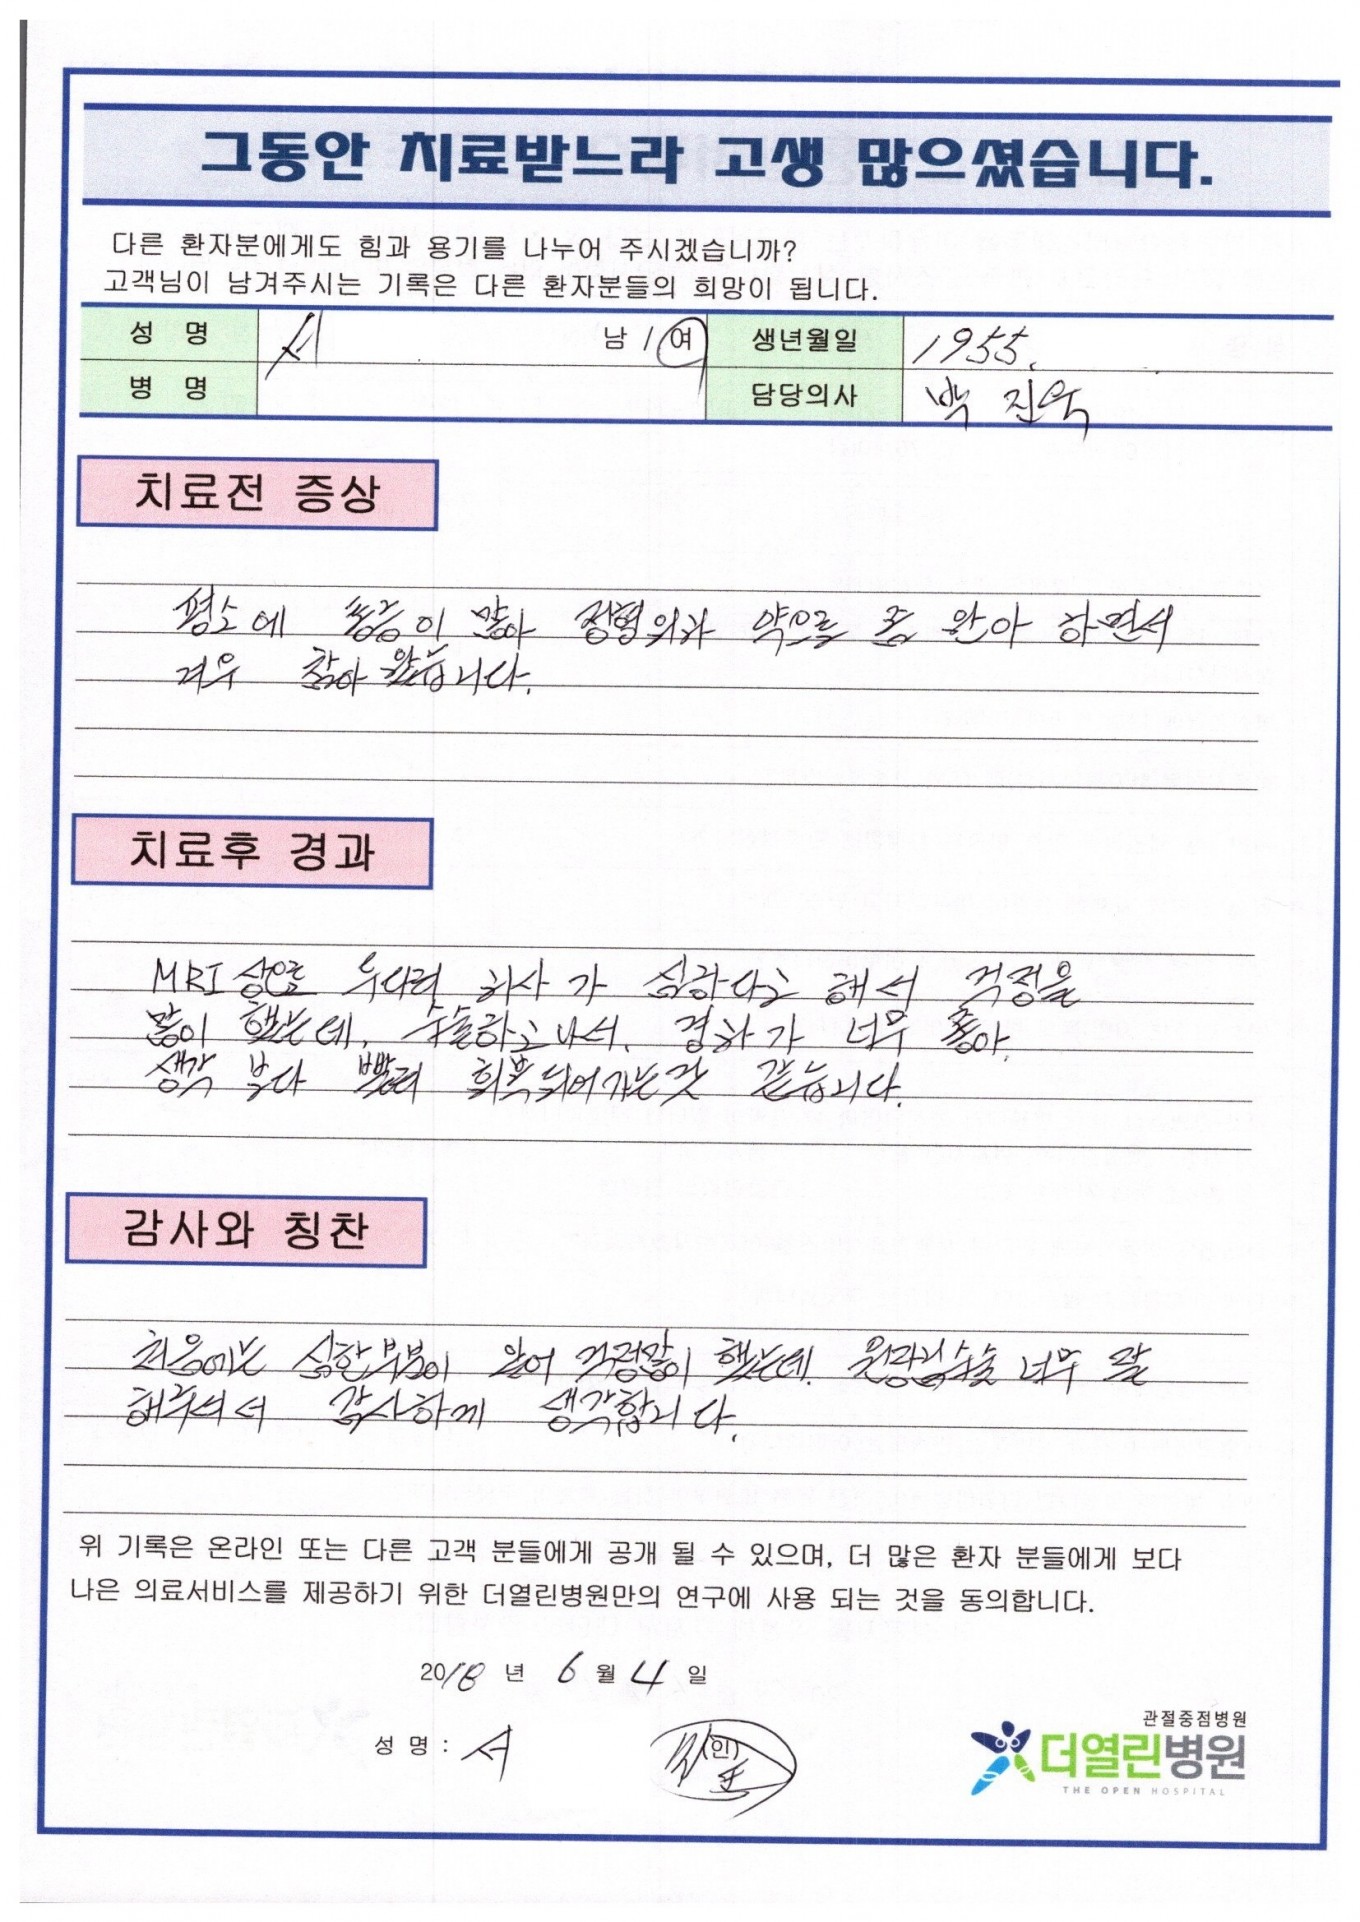 그동안 치료받느라 고생 많으셨습니다.
다른 환자분에게도 힘과 용기를 나누어 주시겠습니까?
고객님이 남겨주시는 기록은 다른 환자분들의 희망이 됩니다.
성 명 서 남 / 여 생년월일 1955.
병 명 담당의사 백 진욱
치료전 증상
평소에 통증이 많아 정형외과 약으로 좀 완아 하면서
겨우 참아 왔습니다.
치료후 경과
MRI 상으로 두다리 하사 가 심하다고 해서 걱정을
많이 했는데, 수술하고나서, 경하가 너무 좋아,
생각 보다 빨리 회복되어가는것 같습니다.
감사와 칭찬
처음에는 심한부분이 있어 걱정많이 했는데. 원장님수술 너무 잘
해주셔서 감사하게 생각합니다.
위 기록은 온라인 또는 다른 고객 분들에게 공개 될 수 있으며, 더 많은 환자 분들에게 보다
나은 의료서비스를 제공하기 위한 더열린병원만의 연구에 사용 되는 것을 동의합니다.
2018 년 6 월 4 일
성 명 : 서 (인)
관절중점병원
더열린병원
THE OPEN HOSPITAL